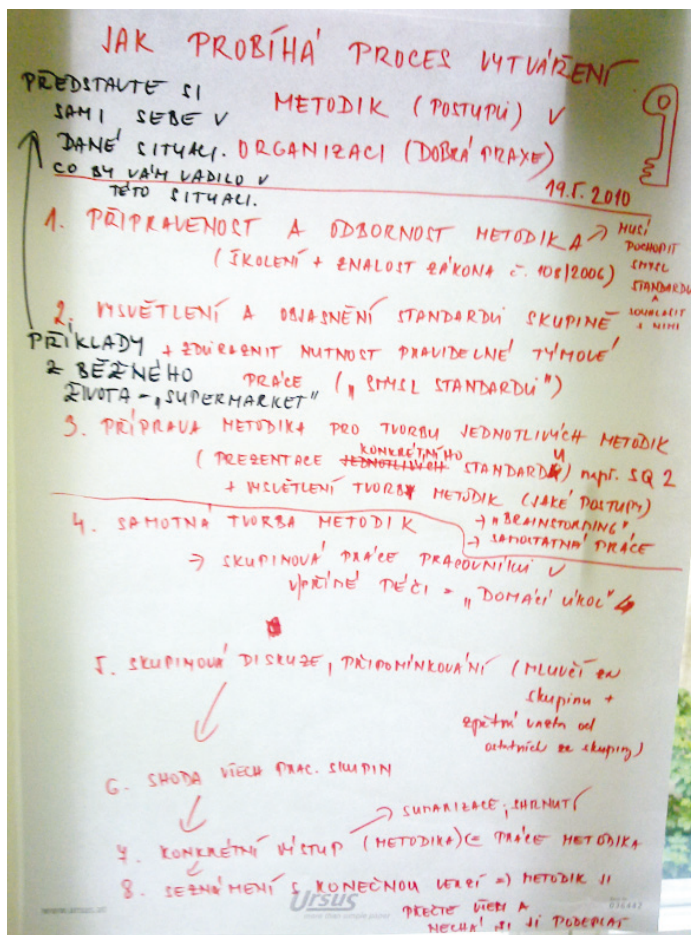 JAK PROBÍHÁ PROCES VYTVÁŘENÍ
METODIK (POSTUPŮ) V
ORGANIZACI (DOBRÁ PRAXE)
19.5.2010
PŘEDSTAVTE SI
SAMI SEBE V
DANÉ SITUACI.
CO BY VÁM VADILO V
TÉTO SITUACI.
1. PŘIPRAVENOST A ODBORNOST METODIKA → MUSÍ
POCHOPIT
SMYSL
STANDARDU
A
SOUHLASIT
S NIMI
(ŠKOLENÍ + ZNALOST ZÁKONA č. 108/2006)
2. VYSVĚTLENÍ A OBJASNĚNÍ STANDARDŮ SKUPINĚ
+ ZDŮRAZNIT NUTNOST PRAVIDELNÉ TÝMOVÉ
PRÁCE („SMYSL STANDARDŮ")
PŘÍKLADY
Z BĚŽNÉHO
ŽIVOTA - „SUPERMARKET"
3. PŘÍPRAVA METODIKA PRO TVORBU JEDNOTLIVÝCH METODIK
KONKRÉTNÍHO
(PREZENTACE JEDNOTLIVÝCH STANDARDY) např. SQ 2
+ VYSVĚTLENÍ TVORBY METODIK (JAKÉ POSTUPY)
→ „BRAINSTORMING"
→ SAMOSTATNÁ PRÁCE
4. SAMOTNÁ TVORBA METODIK
→ SKUPINOVÁ PRÁCE PRACOVNÍKŮ V
PŘÍMÉ PÉČI = „DOMÁCÍ ÚKOL"
5. SKUPINOVÁ DISKUZE, PŘIPOMÍNKOVÁNÍ (MLUVČÍ ZA
skupinu +
zpětná vazba od
ostatních ze skupiny)
6. SHODA VŠECH PRAC. SKUPIN
→ SUMARIZACE, SHRNUTÍ
7. KONKRÉTNÍ VÝSTUP (METODIKA) (= PRÁCE METODIKA
8. SEZNÁMENÍ S KONEČNOU VERZÍ => METODIK JI
PŘEČTE VŠEM A
NECHÁ SI JI PODEPSAT
Ursus